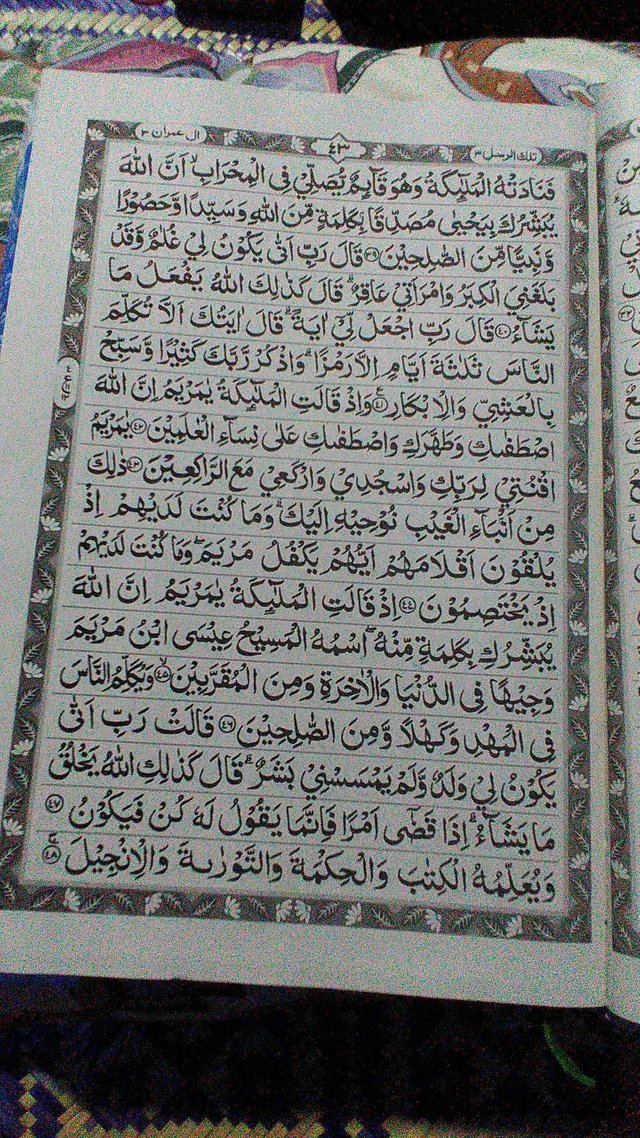 تلك الرسل ٣
٤٣
ال عمران ٣
فَنَادَتْهُ الْمَلٰٓئِكَةُ وَهُوَ قَآئِمٌ يُّصَلِّيْ فِي الْمِحْرَابِۙ اَنَّ اللّٰهَ
يُبَشِّرُكَ بِيَحْيٰى مُصَدِّقًۢا بِكَلِمَةٍ مِّنَ اللّٰهِ وَسَيِّدًا وَّحَصُوْرًا
وَّنَبِيًّا مِّنَ الصّٰلِحِيْنَ ۝٣٩ قَالَ رَبِّ اَنّٰى يَكُوْنُ لِيْ غُلٰمٌ وَّقَدْ
بَلَغَنِيَ الْكِبَرُ وَامْرَاَتِيْ عَاقِرٌؕ قَالَ كَذٰلِكَ اللّٰهُ يَفْعَلُ مَا
يَشَآءُ ۝٤٠ قَالَ رَبِّ اجْعَلْ لِّيْٓ اٰيَةًؕ قَالَ اٰيَتُكَ اَلَّا تُكَلِّمَ
النَّاسَ ثَلٰثَةَ اَيَّامٍ اِلَّا رَمْزًاؕ وَاذْكُرْ رَّبَّكَ كَثِيْرًا وَّسَبِّحْ
بِالْعَشِيِّ وَالْاِبْكَارِ ۝٤١ وَاِذْ قَالَتِ الْمَلٰٓئِكَةُ يٰمَرْيَمُ اِنَّ اللّٰهَ
اصْطَفٰىكِ وَطَهَّرَكِ وَاصْطَفٰىكِ عَلٰى نِسَآءِ الْعٰلَمِيْنَ ۝٤٢ يٰمَرْيَمُ
اقْنُتِيْ لِرَبِّكِ وَاسْجُدِيْ وَارْكَعِيْ مَعَ الرّٰكِعِيْنَ ۝٤٣ ذٰلِكَ
مِنْ اَنْۢبَآءِ الْغَيْبِ نُوْحِيْهِ اِلَيْكَؕ وَمَا كُنْتَ لَدَيْهِمْ اِذْ
يُلْقُوْنَ اَقْلَامَهُمْ اَيُّهُمْ يَكْفُلُ مَرْيَمَ۪ وَمَا كُنْتَ لَدَيْهِمْ
اِذْ يَخْتَصِمُوْنَ ۝٤٤ اِذْ قَالَتِ الْمَلٰٓئِكَةُ يٰمَرْيَمُ اِنَّ اللّٰهَ
يُبَشِّرُكِ بِكَلِمَةٍ مِّنْهُۖ اسْمُهُ الْمَسِيْحُ عِيْسَى ابْنُ مَرْيَمَ
وَجِيْهًا فِي الدُّنْيَا وَالْاٰخِرَةِ وَمِنَ الْمُقَرَّبِيْنَ ۝٤٥ۙ وَيُكَلِّمُ النَّاسَ
فِي الْمَهْدِ وَكَهْلًا وَّمِنَ الصّٰلِحِيْنَ ۝٤٦ قَالَتْ رَبِّ اَنّٰى
يَكُوْنُ لِيْ وَلَدٌ وَّلَمْ يَمْسَسْنِيْ بَشَرٌؕ قَالَ كَذٰلِكِ اللّٰهُ يَخْلُقُ
مَا يَشَآءُؕ اِذَا قَضٰٓى اَمْرًا فَاِنَّمَا يَقُوْلُ لَهٗ كُنْ فَيَكُوْنُ ۝٤٧
وَيُعَلِّمُهُ الْكِتٰبَ وَالْحِكْمَةَ وَالتَّوْرٰىةَ وَالْاِنْجِيْلَ ۝٤٨ۚ